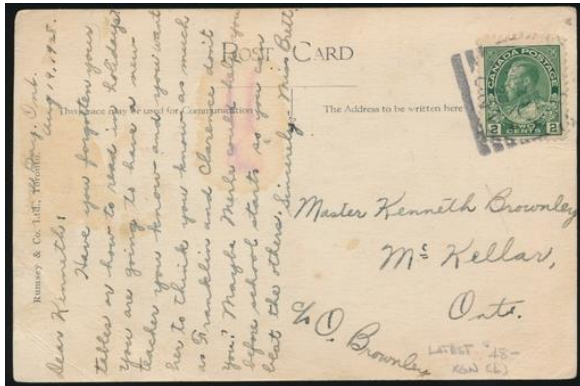 POST CARD
This space may be used for Communication
The Address to be written here
CANADA POSTAGE
2 TWO CENTS 2
Rumsey & Co. Ltd., Toronto.
Ont.
Aug 19, 1925.
Dear Kenneth;
Have you forgotten your
tables or how to read in holidays?
You are going to have a new
teacher you know and you want
her to think you know as much
as Franklin and Clarence don't
you? Maybe Merle could help you
before school starts so you can
beat the others. Sincerely, Miss Bell.
Master Kenneth Brownley
McKellar,
Ont.
c/o O. Brownley
LATEST '48-